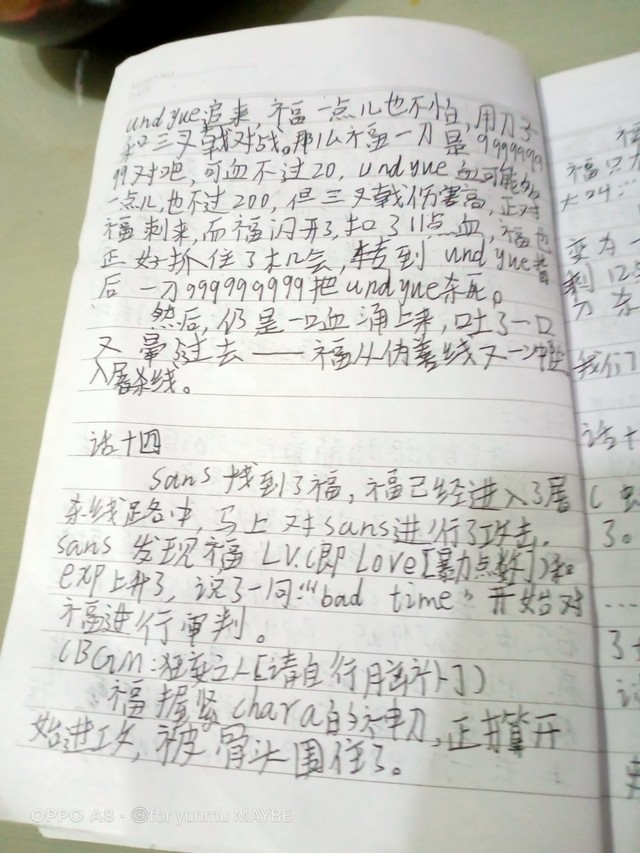 undyue追来,福一点儿也不怕,用刀子
和三叉戟对战。那么福一刀是9999999
99对吧,可血不过20,undyue血可能
一点儿,也不过200,但三叉戟伤害高,正对
福刺来,而福闪开了,扣了11点血,福也
正好抓住了机会,转到undyue背
后一刀999999999把undyue杀死。
然后,仍是一口血涌上来,吐了一口
又晕了过去——福从伪善线又一冲
入屠杀线。
话十四
sans找到了福,福已经进入了屠
杀线路中,马上对sans进行了攻击。
sans发现福LV.(即Love[暴力点数])和
exp上升了,说了一句:“bad time”开始对
福进行审判。
(BGM:狂妄之人[请自行脑补])
福握紧chara的水果刀,正打算开
始进攻,被骨头围住了。
福
福只
大叫:
变为一
剩12
刀杀
我们
话十
(
3。
……
3
OPPO A8 · @foryunmu MAYBE